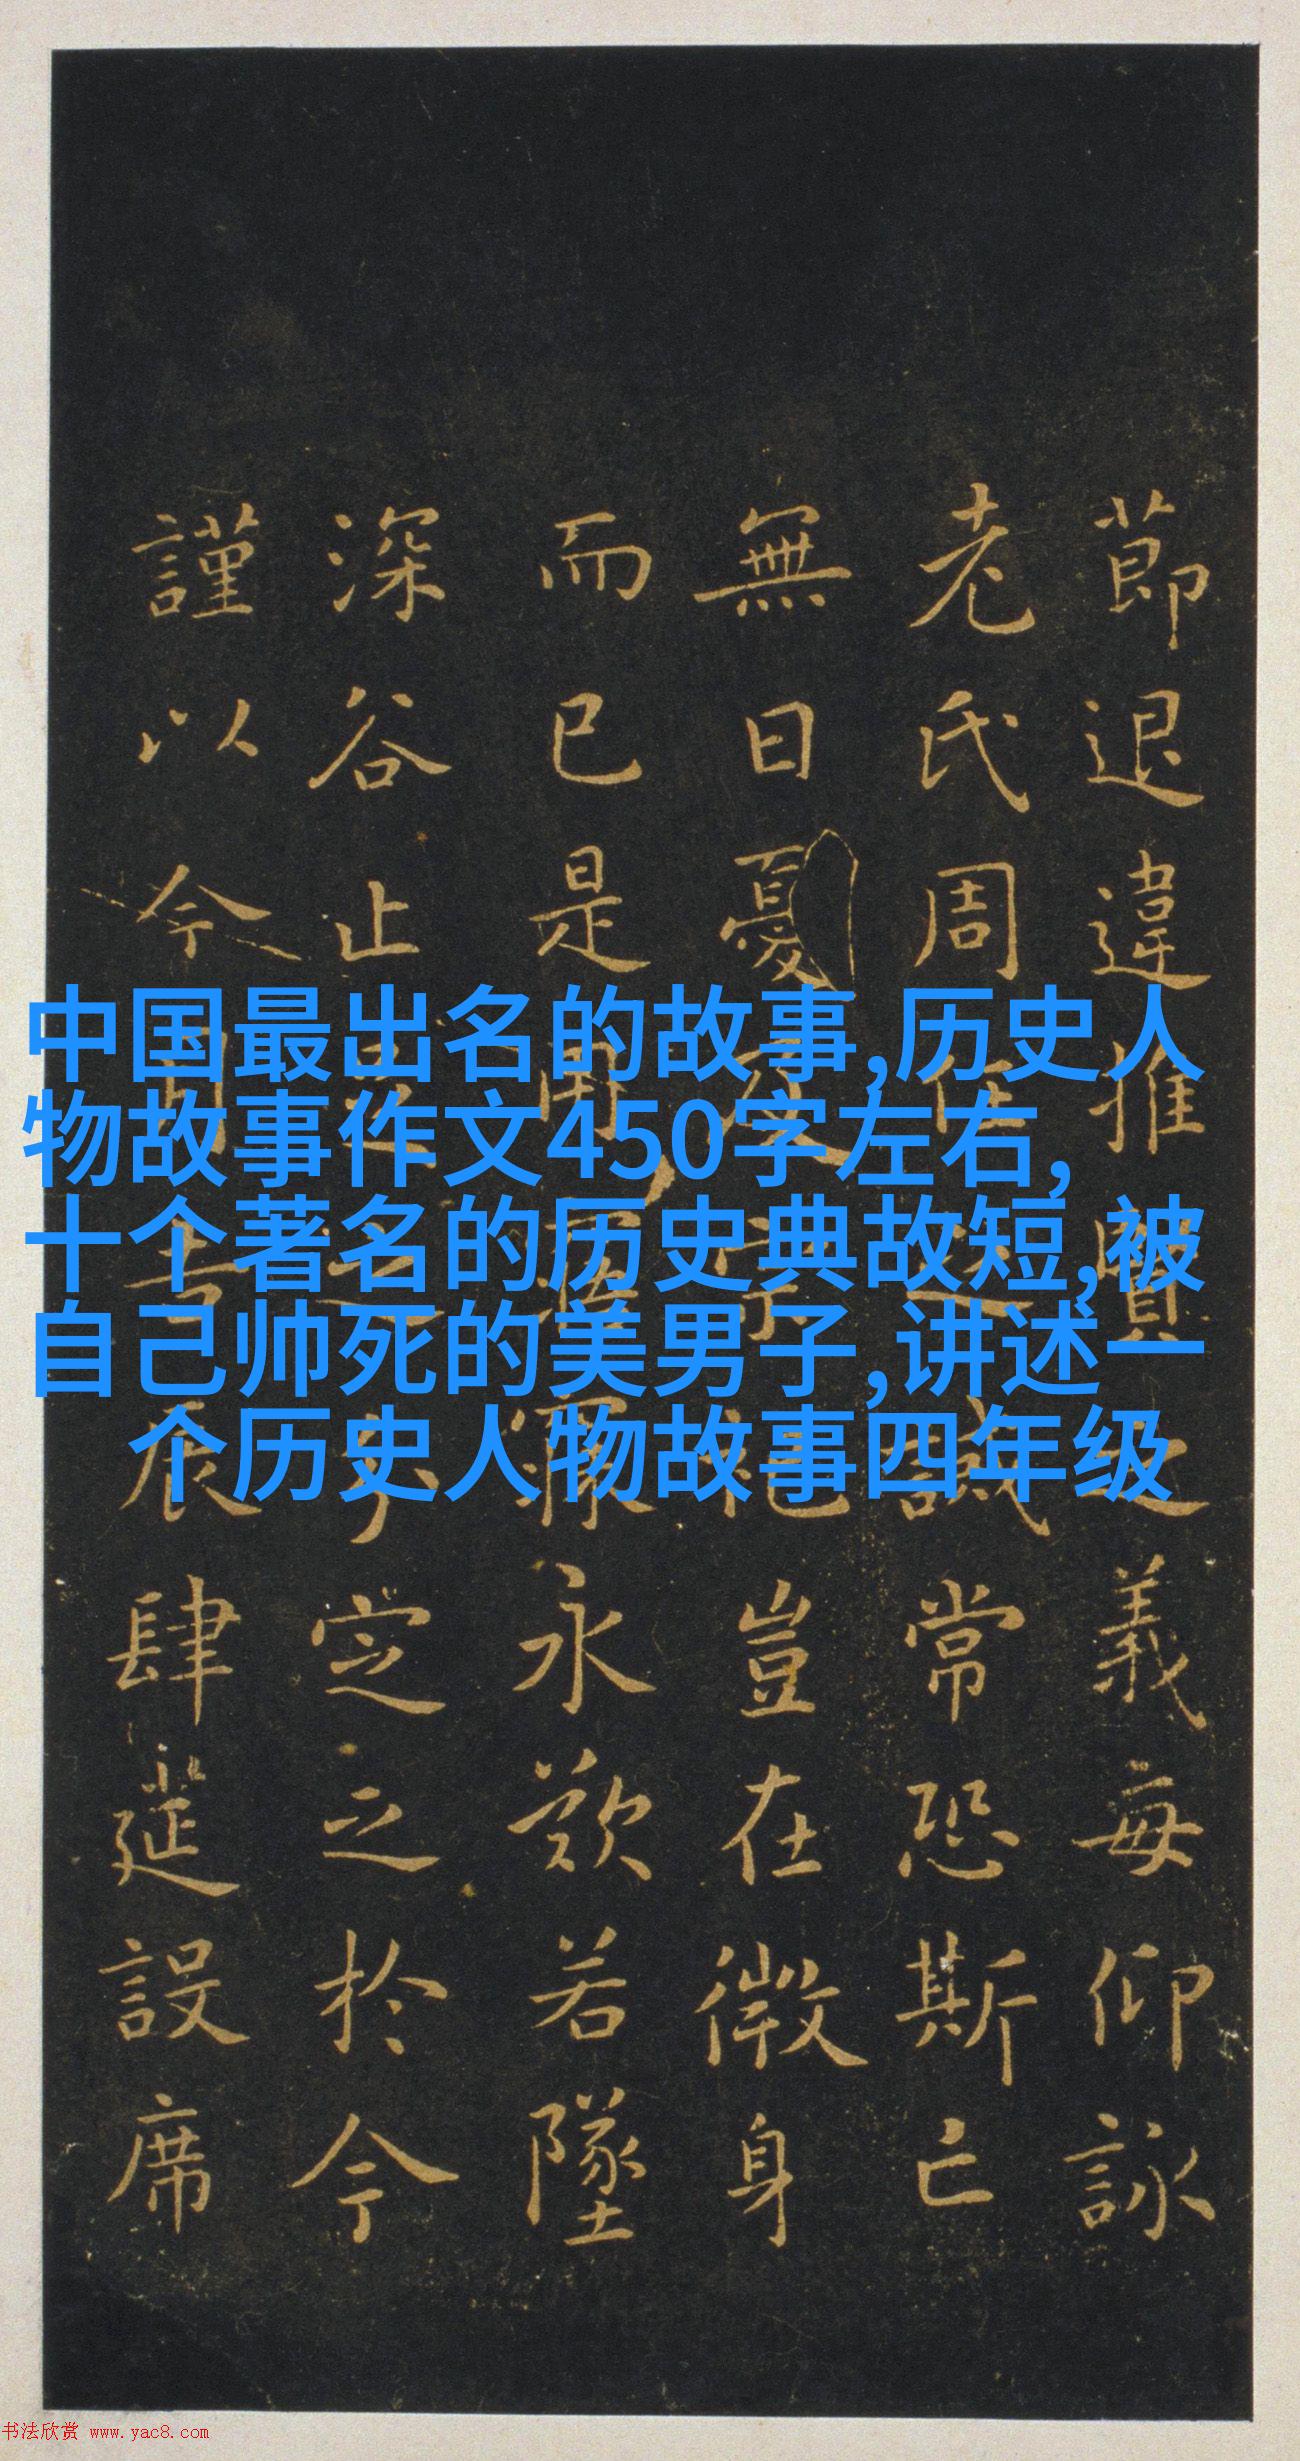 中国最出名的故事,历史人
物故事作文450字左右,
十个著名的历史典故短,被
自己帅死的美男子,讲述一
个历史人物故事四年级
莭退違推賢之義每仰詠
老氏周任之誡常恐斯亡
無日憂及宗祀豈在微身
而已是用寤寐永歎若墜
深谷止足之分定之於今
謹以今月吉辰肆筵設席
书法欣赏 www.yac8.com